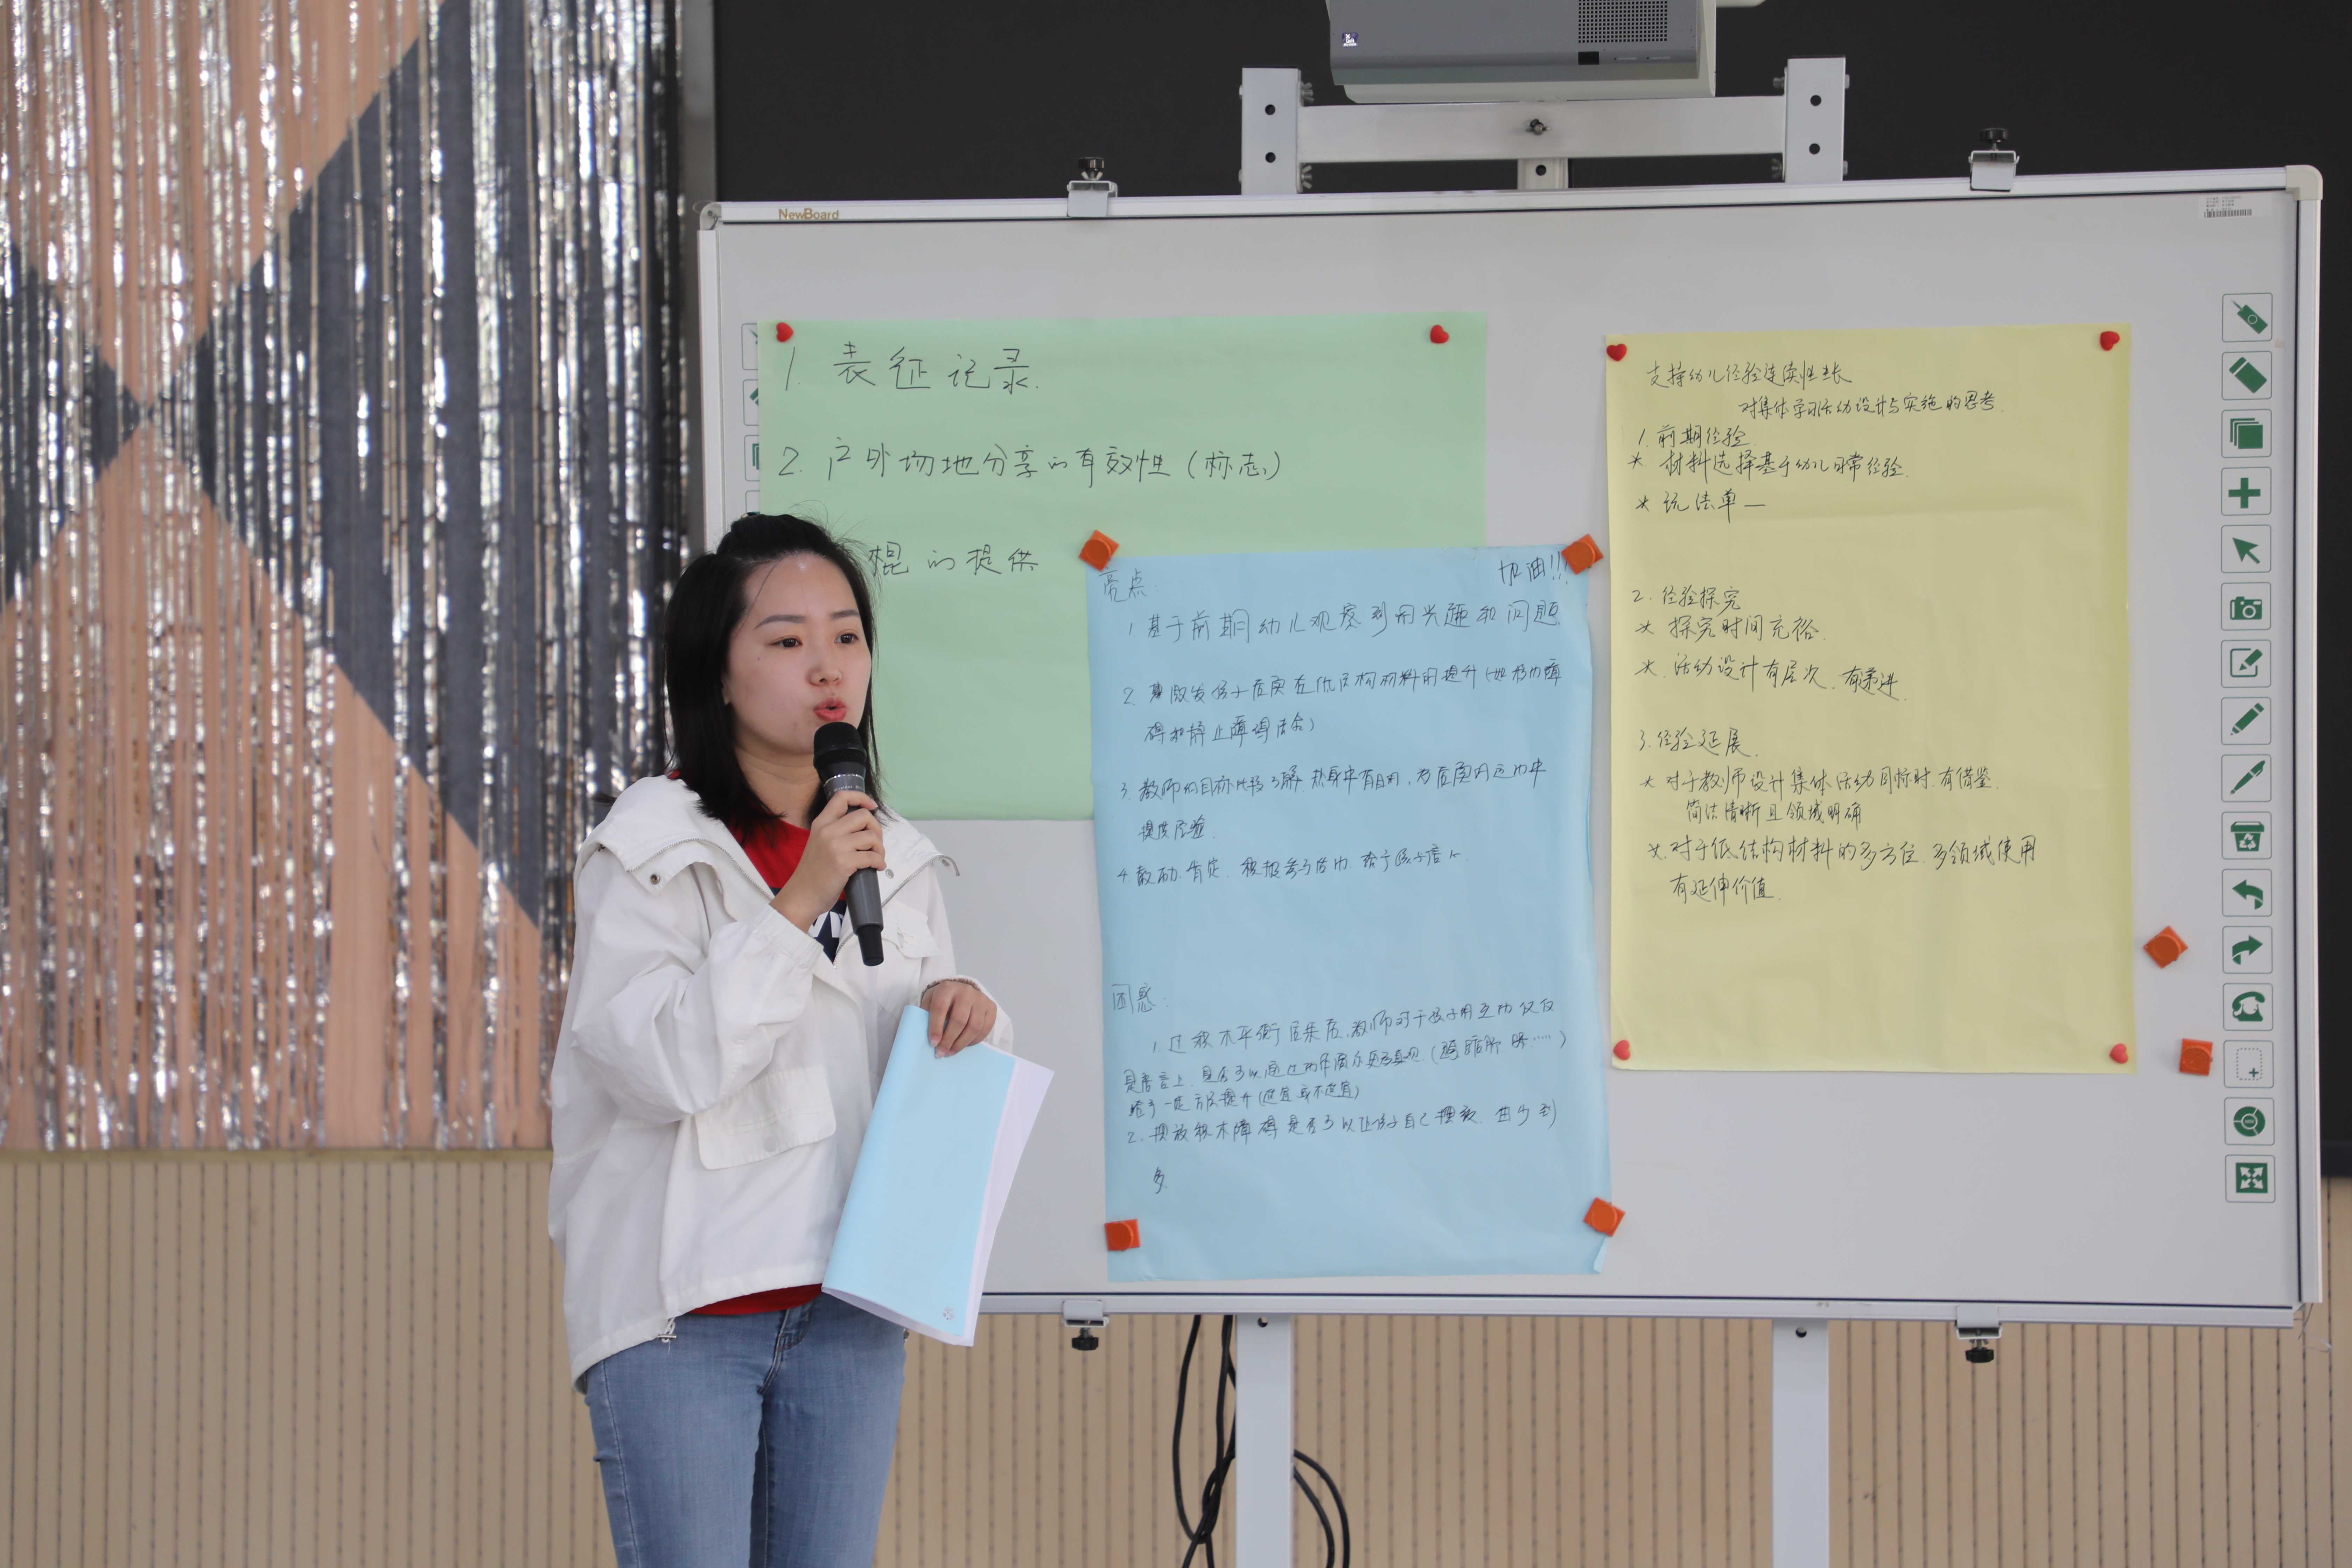 NewBoard
1. 表征记录.
2. 户外场地分享的有效性(标志)
棍的提供
亮点:
加油!!!
1 基于前期幼儿观察到的兴趣和问题.
2. 在低结构材料的提升(如移动障
碍和静止障碍结合)
3. 教师的目标 了解 热身中有目的,为后面的运动中
提供经验.
4. 鼓励.肯定.积极参与活动.给予孩子信心.
困惑:
1. 过积木平衡 教师对于孩子的互动仅仅
是语言上,是否可以通过动作
给予一定方法提升
2. 摆放积木障碍是否可以让孩子自己摆放.由少到
多.
支持幼儿经验连续性生长
对集体学习活动设计与实施的思考.
1. 前期经验.
* 材料选择基于幼儿日常经验.
* 玩法单一
2. 经验探究
* 探究时间充裕.
* 活动设计有层次.有递进.
3. 经验延展.
* 对于教师设计集体活动目标时.有借鉴.
简洁清晰且领域明确
* 对于低结构材料的多方位.多领域使用
有延伸价值.